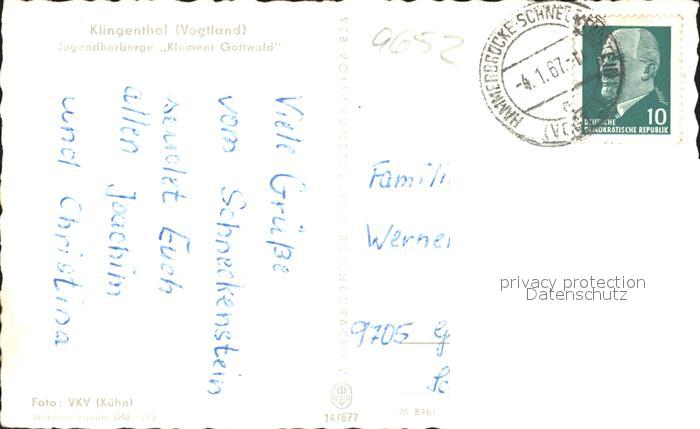 Klingenthal (Vogtland)
Jugendherberge „Klement Gottwald"
Viele Grüße
vom Schneckenstein
sendet Euch
allen Joachim
und Christina
Foto: VKV (Kühn)
Verbraucherpreis DM -,15
VEB VOLKSKUNSTVERLAG REICHENBACH I. V.
14/677
M 8461
9652
HAMMERBRÜCKE-SCHNECKENSTEIN
-4.1.67.-
10
DEUTSCHE
DEMOKRATISCHE REPUBLIK
Famili
Werner
9705 G
privacy protection
Datenschutz